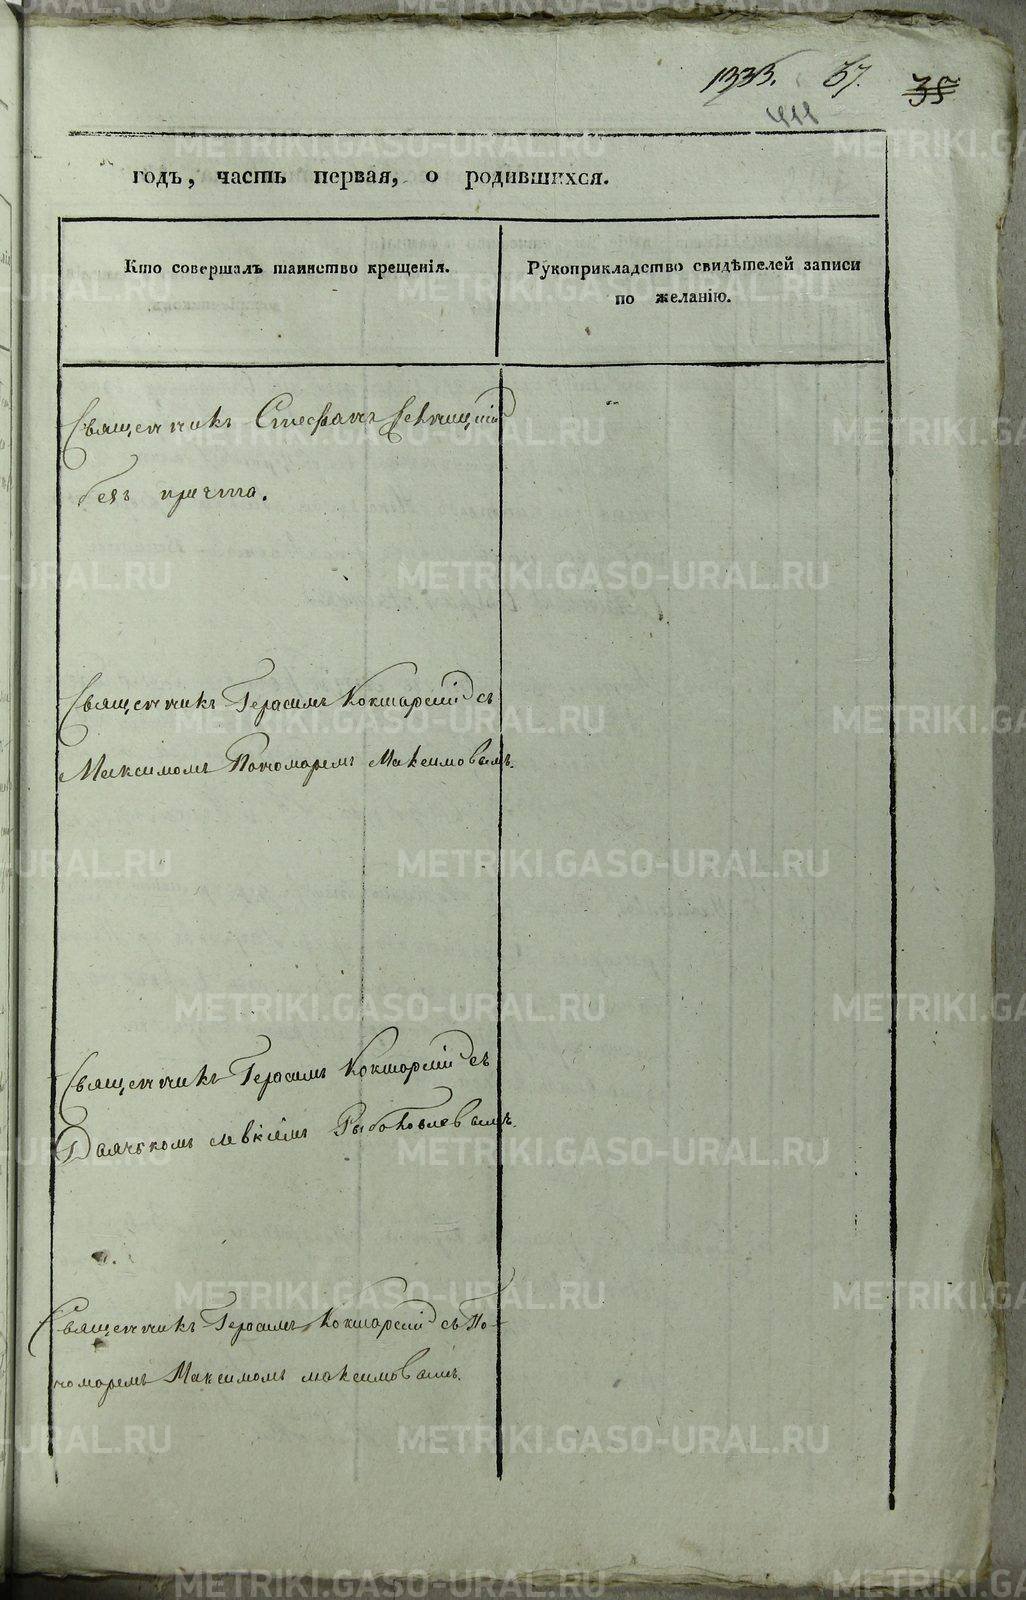 1333. 37. 35
годъ, часть первая, о родившихся.
Кто совершалъ таинство крещенія.
Рукоприкладство свидѣтелей записи
по желанію.
Священникъ Стефанъ
безъ причта.
Священникъ Герасимъ Кокшарскій съ
Максимомъ Пономаремъ Максимовымъ.
Священникъ Герасимъ Кокшарскій съ
Дьячкомъ
Священникъ Герасимъ Кокшарскій съ По-
номаремъ Максимомъ максимовымъ.
METRIKI.GASO-URAL.RU